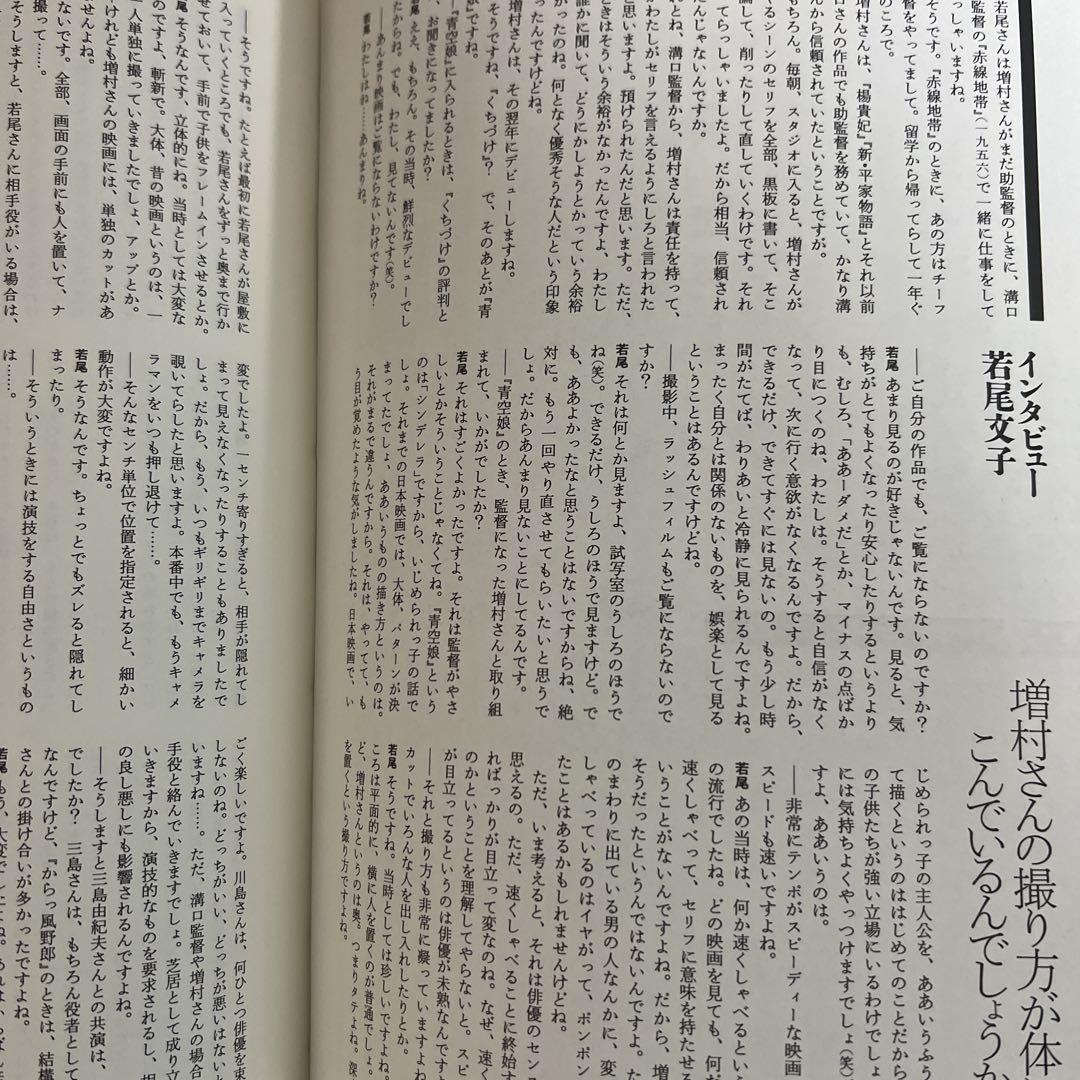 インタビュー
若尾文子
増村さんの撮り方が体
こんでいるんでしょうか
若尾さんは増村さんがまだ助監督のときに、溝口
監督の『赤線地帯』(一九五六)で一緒に仕事をして
っしゃいますね。
そうです。『赤線地帯』のときに、あの方はチーフ
をやってまして。留学から帰ってらして一年ぐ
のころで。
増村さんは、『楊貴妃』『新・平家物語』とそれ以前
口さんの作品でも助監督を務めていて、かなり溝
んから信頼されていたということですが。
もちろん。毎朝、スタジオに入ると、増村さんが
くるシーンのセリフを全部、黒板に書いて、そこ
論して、削ったりして直していくわけです。それ
てらっしゃいましたよ。だから相当、信頼され
たんじゃないんですか。
れとね、溝口監督から、増村さんは責任を持って、
かわたしがセリフを言えるようにしろと言われた
と思いますよ。預けられたんだと思います。ただ、
ときはそういう余裕がなかったんですよ、わたし
誰かに聞いて、どうにかしようとかっていう余裕
かったのね。何となく優秀そうな人だという印象
ったんですけどね。
増村さんは、その翌年にデビューしますね。
そうですね、『くちづけ』?　で、そのあとが『青
『青空娘』に入られるときは、『くちづけ』の評判と
、お聞きになってましたか?
若尾　ええ、もちろん。その当時、鮮烈なデビューでし
たからね。でも、わたし、見てないんです(笑)。
――あんまり映画はご覧にならないわけですか?
若尾　わたしはね……あんまりね。
――ご自分の作品でも、ご覧にならないのですか?
若尾　あまり見るのが好きじゃないんです。見ると、気
持ちがとてもよくなったり安心したりするというより
も、むしろ、「ああーダメだ」とか、マイナスの点ばか
り目につくのね、わたしは。そうすると自信がなく
なって、次に行く意欲がなくなるんですよ。だから、
できるだけ、できてすぐには見ないの。もう少し時
間がたてば、わりあいと冷静に見られるんですよね。
まったく自分とは関係のないものを、娯楽として見る
ということとはできないんですけどね。
――撮影中、ラッシュフィルムもご覧にならないので
すか?
若尾　それは何とか見ますよ、試写室のうしろのほうで
ね(笑)。できるだけ、うしろのほうで見ますけど。で
も、ああよかったなと思うことはないですからね、絶
対に。もう一回やり直させてもらいたいと思うで
しょ。だからあんまり見ないことにしてるんです。
――『青空娘』のとき、監督になった増村さんと取り組
まれて、いかがでしたか?
若尾　それはすごくよかったですよ。それは監督がやさ
しいとかそういうことじゃなくてね。『青空娘』という
のは、シンデレラですから、いじめられっ子の話で
しょ。それまでの日本映画では、大体、パターンが決
まってたでしょ、ああいうものの描き方というのは。
それがまるで違うんですから。それは、やってて、も
う目が覚めたような気がしましたね。日本映画で、い
じめられっ子の主人公を、ああいうふう
て描くというのははじめてのことだから
の子供たちが強い立場にいるわけでしょ
には気持ちよくやっつけますでしょ(笑)
すよ、ああいうのは。
――非常にテンポがスピーディーな映画
スピードも速いですよね。
若尾　あの当時は、何か速くしゃべるという
の流行でしたね。どの映画を見ても、何だ
速くしゃべって、セリフに意味を持たせる
いうことがないんですよね。だから、増
そうだったというんではないんですよ。
のまわりに出ている男の人なんかに、変
しゃべっているのはイヤがって、ポンポン
たことはあるかもしれませんけどね。
ただ、いま考えると、それは俳優のセンス
思えるの。ただ、速くしゃべることに終始す
ればっかりが目立って変なのね。なぜ、速く
のかということを理解してやらないと。スピ
が目立ってるというのは俳優が未熟なんです
――それと撮り方も非常に凝っていますよね
カットでいろんな人を出し入れしたりとか。
若尾　そうですね。当時としては珍しいですよね。
ころは平面的に、横に人を置くのが普通でしょ。
ど、増村さんというのは奥。つまりタテよね。深
を置くという撮り方ですよね。
――そうですね。たとえば最初に若尾さんが屋敷に
入っていくところでも、若尾さんをずっと奥まで行か
せておいて、手前で子供をフレームインさせるとか。
若尾　そうなんです、立体的にね。当時としては大変な
ですよ、斬新で。大体、昔の映画というのは、一
人単独に撮っていきましたでしょ、アップとか。
けれども増村さんの映画には、単独のカットがあ
せんよね。
ないです。全部、画面の手前にも人を置いて、ナ
撮って……。
そうしますと、若尾さんに相手役がいる場合は、
変でしたよ。一センチ寄りすぎると、相手が隠れてし
まって見えなくなったりすることもありましたで
しょ。だから、もう、いつもギリギリまでキャメラを
覗いてらしたと思いますよ。本番中でも、もうキャメ
ラマンをいつも押し退けて……。
――そんなセンチ単位で位置を指定されると、細かい
動作が大変ですよね。
若尾　そうなんです。ちょっとでもズレると隠れてし
まったり。
――そういうときには演技をする自由さというもの
は……。
ごく楽しいですよ。川島さんは、何ひとつ俳優を束
しないのね。どっちがいい、どっちが悪いはないと
いますね……。ただ、溝口監督や増村さんの場合
手役と絡んでいきますでしょ。芝居として成り立
いきますから、演技的なものを要求されるし、相
の良し悪しにも影響されるんですよね。
――そうしますと三島由紀夫さんとの共演は、
でしたか?　三島さんは、もちろん役者として
なんですけど、『からっ風野郎』のときは、結構
さんとの掛け合いが多かったですよね。
若尾　もう、大変でしたよね。